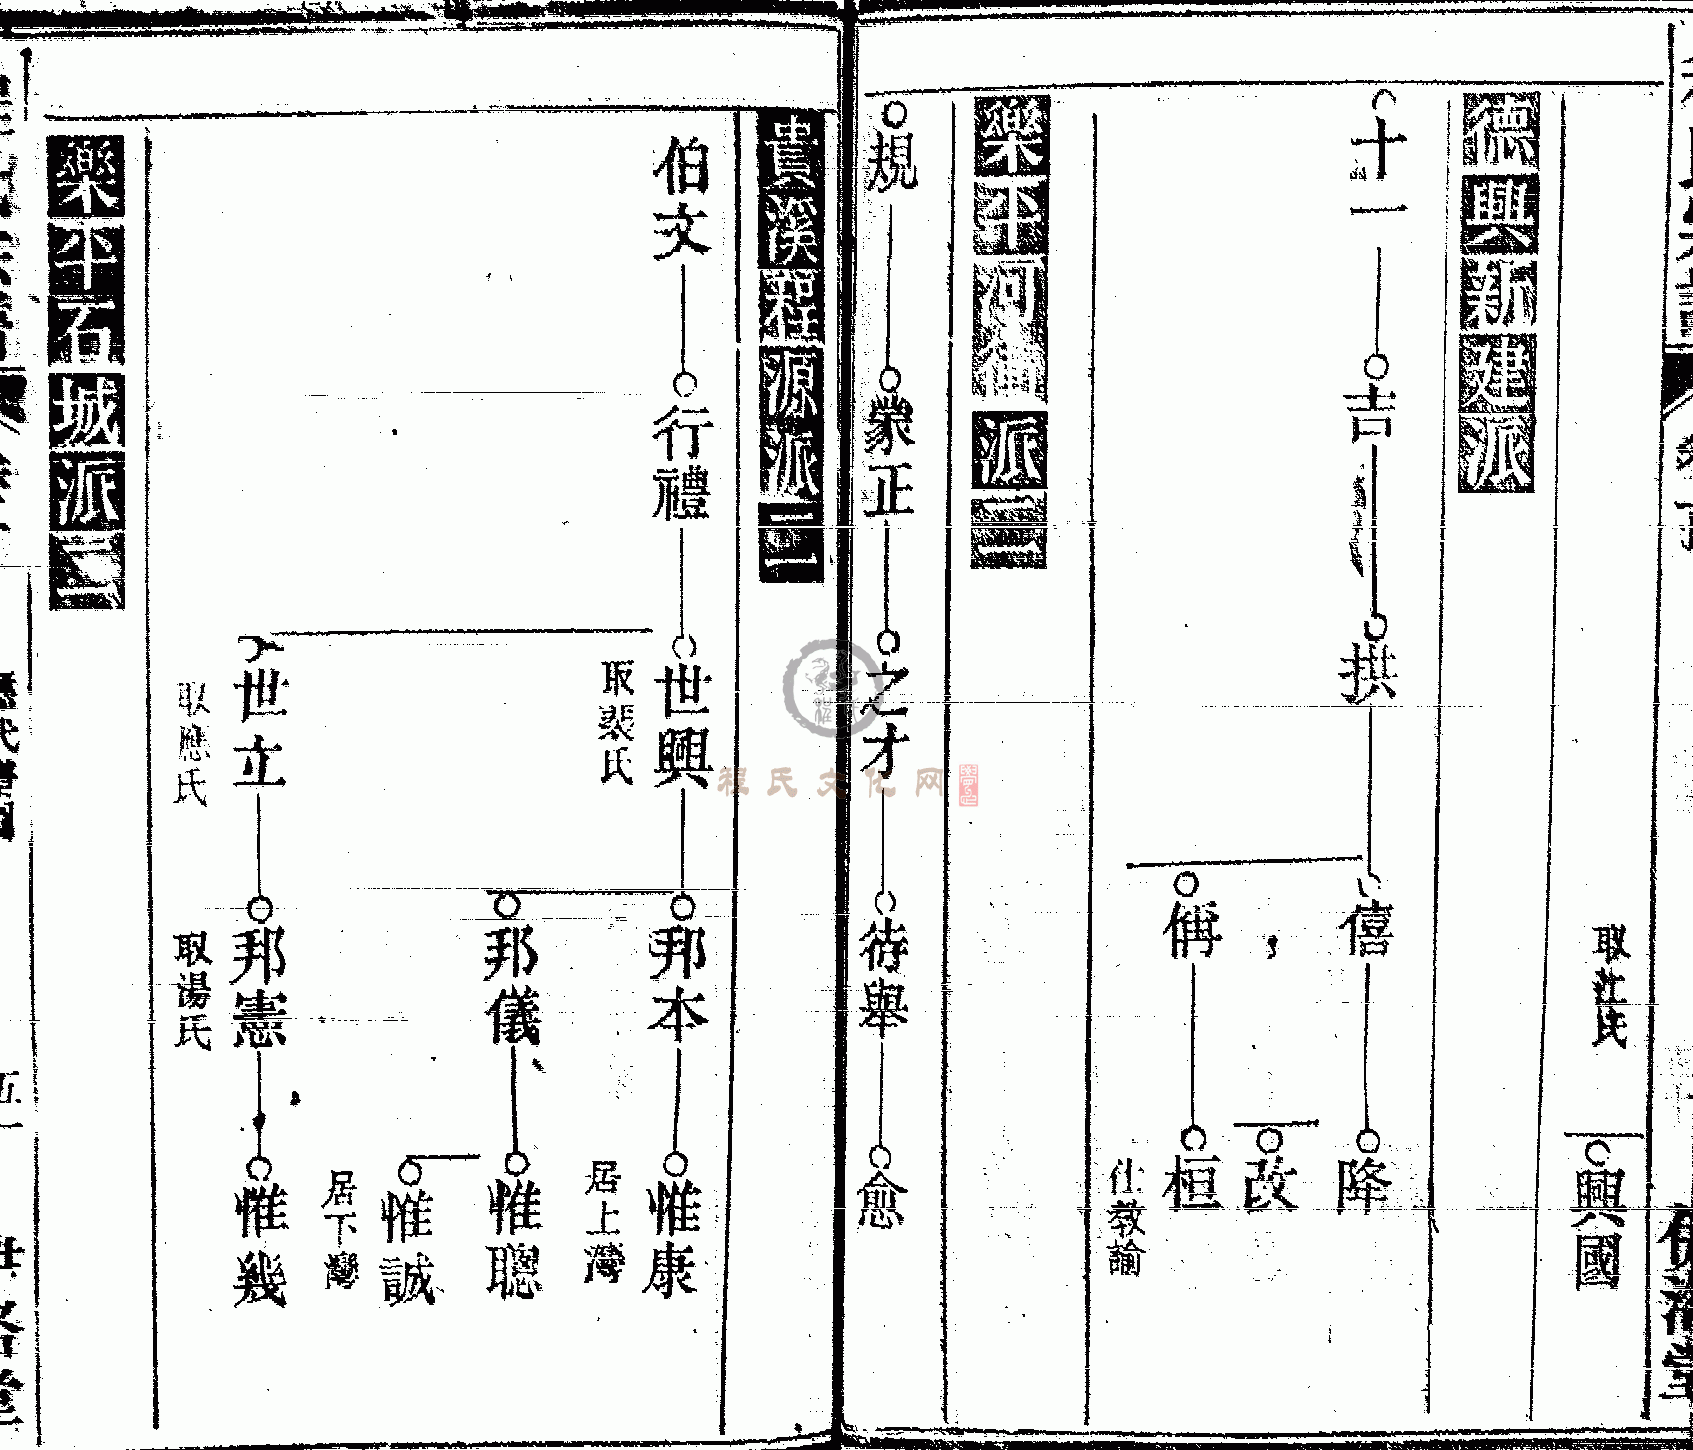 取江氏
興國
德興新建派
十一
吉
拱
僖
降
改
偁
桓
仕教諭
樂平河衝派三
規
蒙正
之才
待舉
愈
貴溪程源派二
伯文
行禮
世興
取裴氏
邦本
惟康
居上灣
邦儀
惟聰
惟誠
居下灣
世立
取應氏
邦憲
取湯氏
惟幾
樂平石城派二
程氏文化网